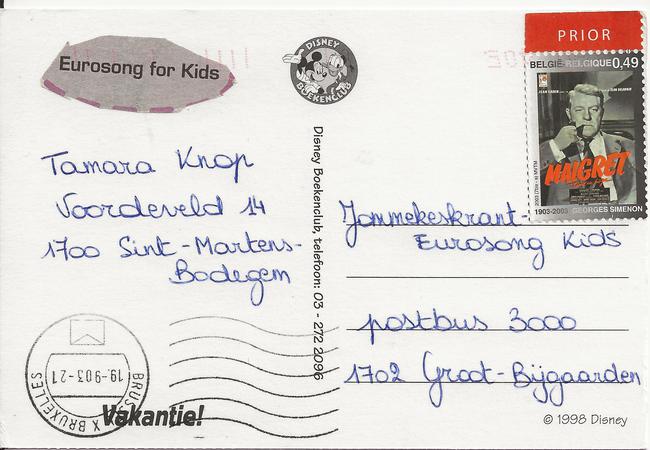 Eurosong for Kids
DISNEY
BOEKENCLUB
PRIOR
BELGIË-BELGIQUE 0,49
JEAN GABIN
MAIGRET
1903-2003 GEORGES SIMENON
Tamara Knop
Voordeveld 14
1700 Sint-Martens-
Bodegem
Disney Boekenclub, telefoon: 03 - 272 2096
Jommekeskrant-
Eurosong Kids
postbus 3000
1702 Groot-Bijgaarden
19-903-21
BRUXELLES X BRUS
Vakantie!
© 1998 Disney